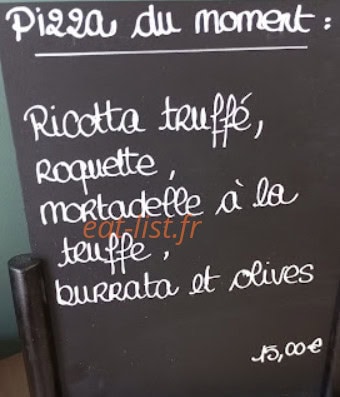 Pizza du moment :
Ricotta truffé,
Roquette,
mortadelle à la
truffe,
burrata et olives
15,00€
eat-list.fr